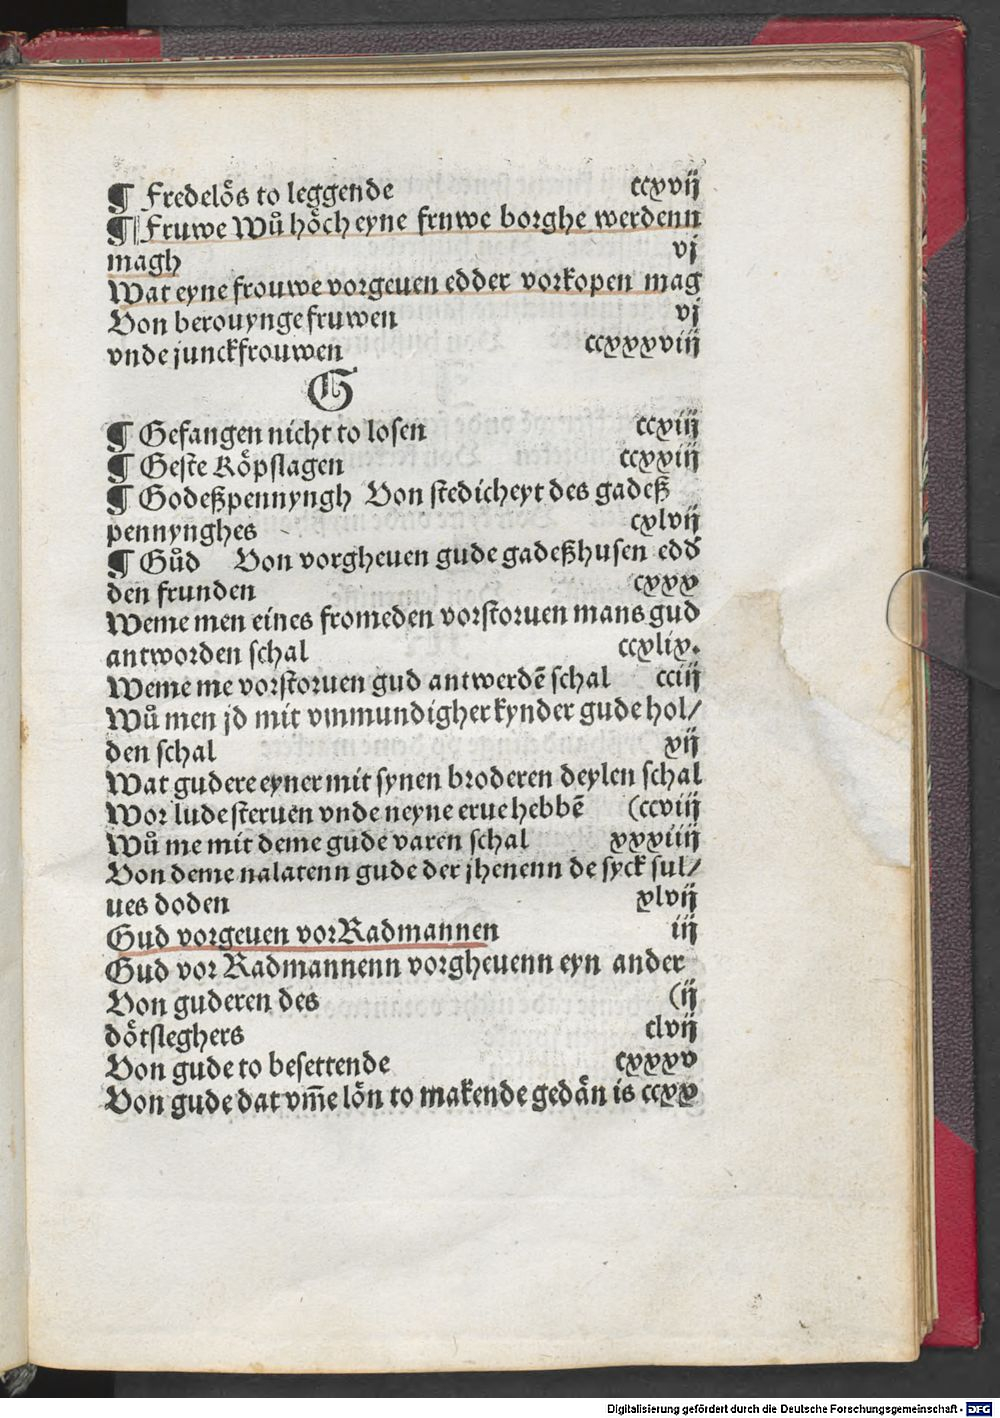 ¶ Fredelo̊s to leggende ccxvij
¶ Fruwe Wů ho̊ch eyne fruwe borghe werdenn
magh vj
Wat eyne frouwe vorgeuen edder vorkopen mag
Von berouynge fruwen vj
vnde junckfrouwen ccxxxviij
G
¶ Gefangen nicht to losen ccxiij
¶ Geste Ko̊pslagen ccxxiij
¶ Godeßpennyngh Von stedicheyt des gadeß
pennynghes cxlvij
¶ Gůd Von vorgheuen gude gadeßhusen edď
den frunden cxxx
Weme men eines fromeden vorstoruen mans gud
antworden schal ccxlix.
Weme me vorstoruen gud antwerdē schal cciij
Wů men jd mit vnmundigher kynder gude hol/
den schal xij
Wat gudere eyner mit synen broderen deylen schal
Wor lude steruen vnde neyne erue hebbē (ccviij
Wů me mit deme gude varen schal xxxiiij
Von deme nalatenn gude der jhenenn de syck sul/
ues doden xlvij
Gud vorgeuen vor Radmannen iij
Gud vor Radmannenn vorgheuenn eyn ander
Von guderen des (ij
do̊tsleghers clvij
Von gude to besettende cxxxv
Von gude dat vm̄e lo̊n to makende gedån is ccxx
Digitalisierung gefördert durch die Deutsche Forschungsgemeinschaft - DFG